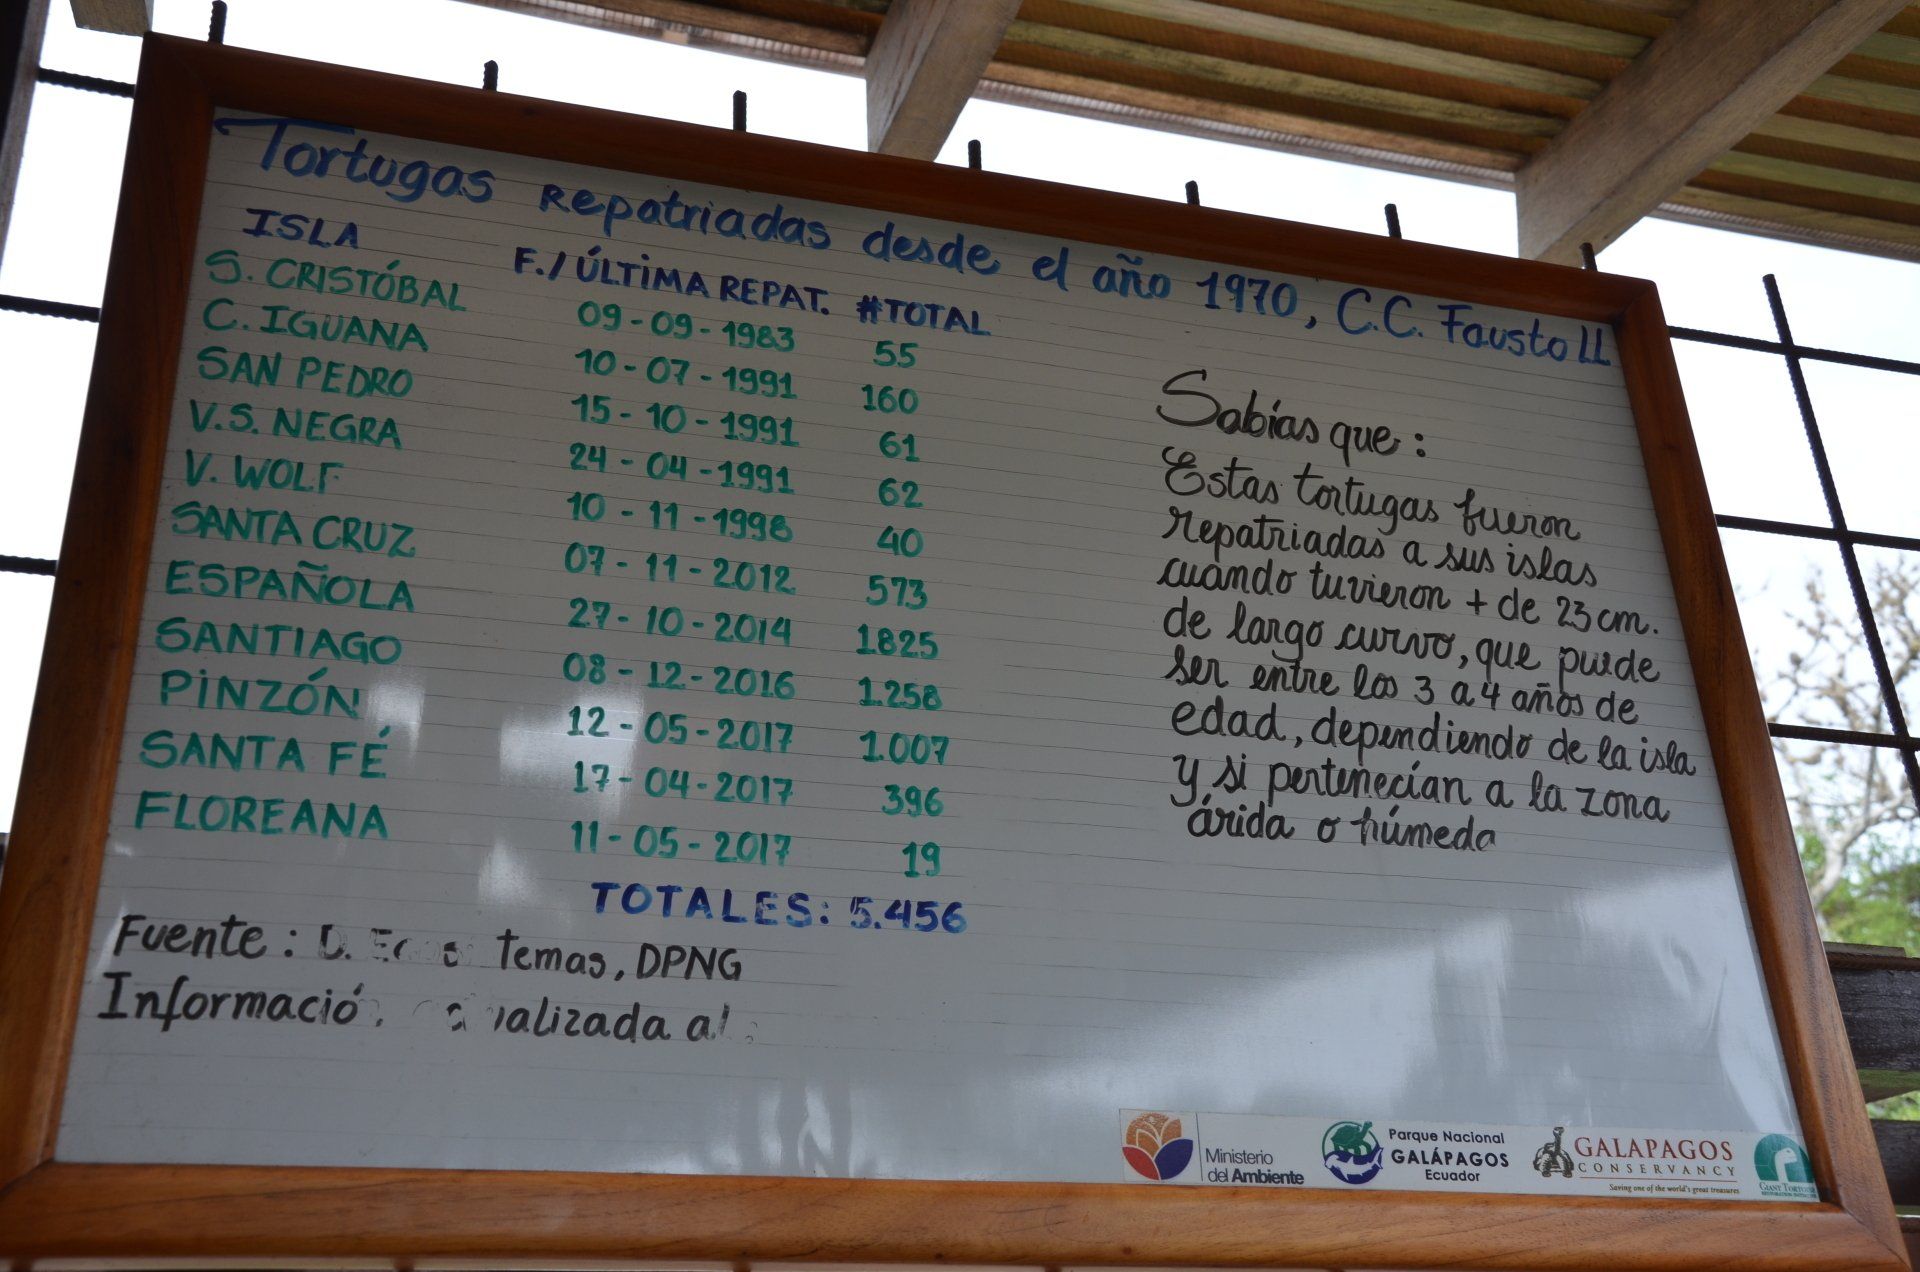 Tortugas Repatriadas desde el año 1970, C.C. Fausto LL
ISLA F./ÚLTIMA REPAT. #TOTAL
S. CRISTÓBAL 09-09-1983 55
C. IGUANA 10-07-1991 160
SAN PEDRO 15-10-1991 61
V.S. NEGRA 24-04-1991 62
V. WOLF 10-11-1998 40
SANTA CRUZ 07-11-2012 573
ESPAÑOLA 27-10-2014 1825
SANTIAGO 08-12-2016 1.258
PINZÓN 12-05-2017 1.007
SANTA FÉ 17-04-2017 396
FLOREANA 11-05-2017 19
TOTALES: 5.456
Fuente: D. temas, DPNG
Sabías que:
Estas tortugas fueron
repatriadas a sus islas
cuando tuvieron + de 23 cm.
de largo curvo, que puede
ser entre los 3 a 4 años de
edad, dependiendo de la isla
y si pertenecían a la zona
árida o húmeda
Ministerio
del Ambiente
Parque Nacional
GALÁPAGOS
Ecuador
GALAPAGOS
CONSERVANCY
Saving one of the world's great treasures